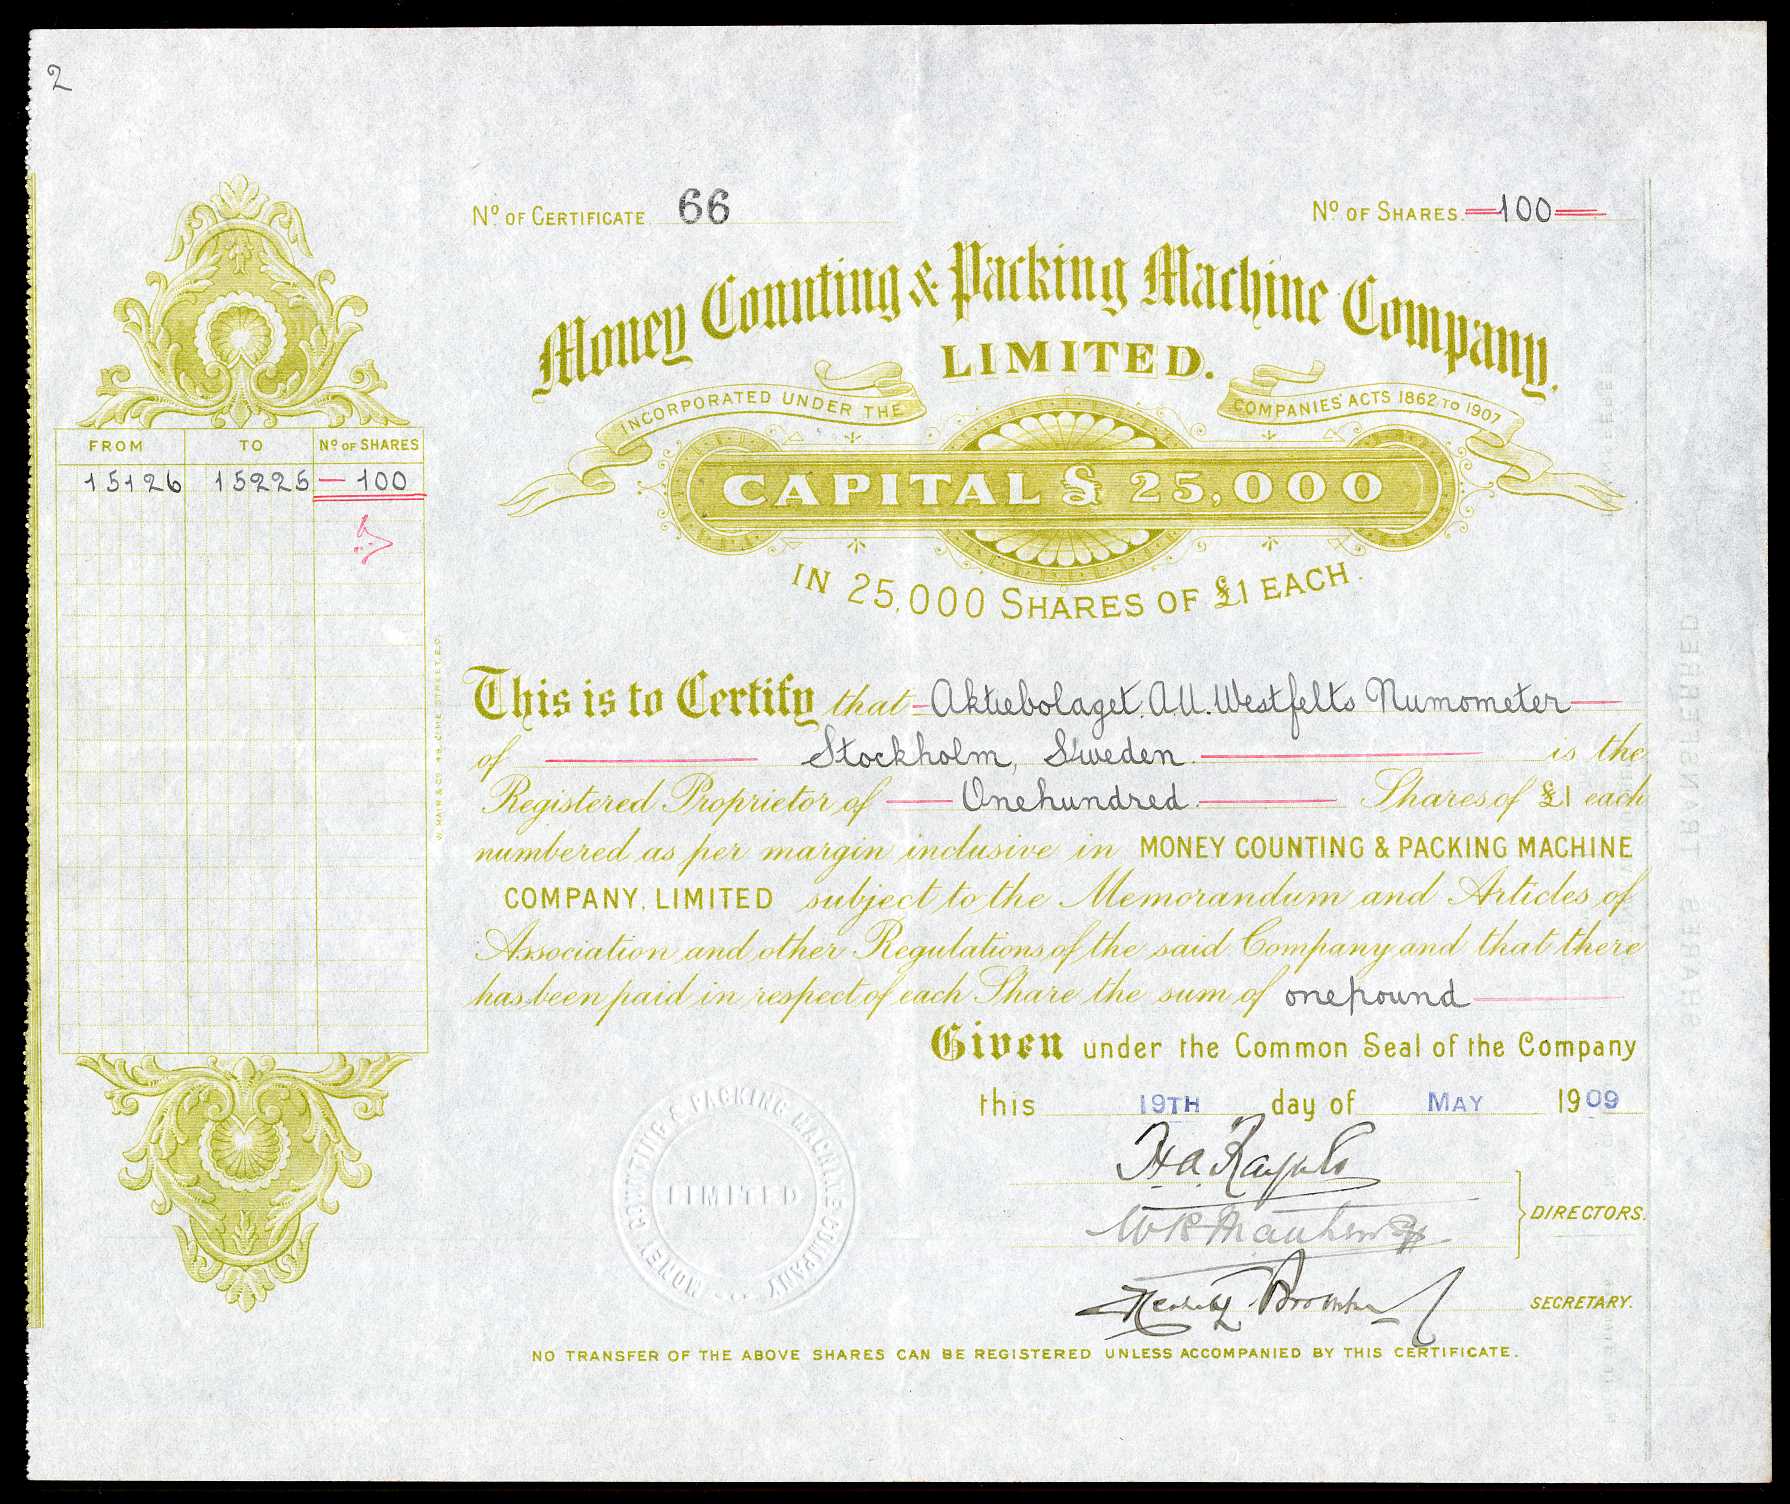 2
Nº OF CERTIFICATE 66
Nº OF SHARES 100
Money Counting & Packing Machine Company.
LIMITED.
INCORPORATED UNDER THE COMPANIES' ACTS 1862 TO 1907
CAPITAL £ 25,000
IN 25,000 SHARES OF £1 EACH.
FROM TO Nº OF SHARES
15126 15225 100
This is to Certify that Aktiebolaget A.U. Westfelts Numometer
of Stockholm, Sweden. is the
Registered Proprietor of One hundred Shares of £1 each
numbered as per margin inclusive in MONEY COUNTING & PACKING MACHINE
COMPANY, LIMITED subject to the Memorandum and Articles of
Association and other Regulations of the said Company and that there
has been paid in respect of each Share the sum of one pound
Given under the Common Seal of the Company
this 19TH day of MAY 1909
DIRECTORS.
SECRETARY.
MONEY COUNTING & PACKING MACHINE COMPANY
LIMITED
NO TRANSFER OF THE ABOVE SHARES CAN BE REGISTERED UNLESS ACCOMPANIED BY THIS CERTIFICATE.